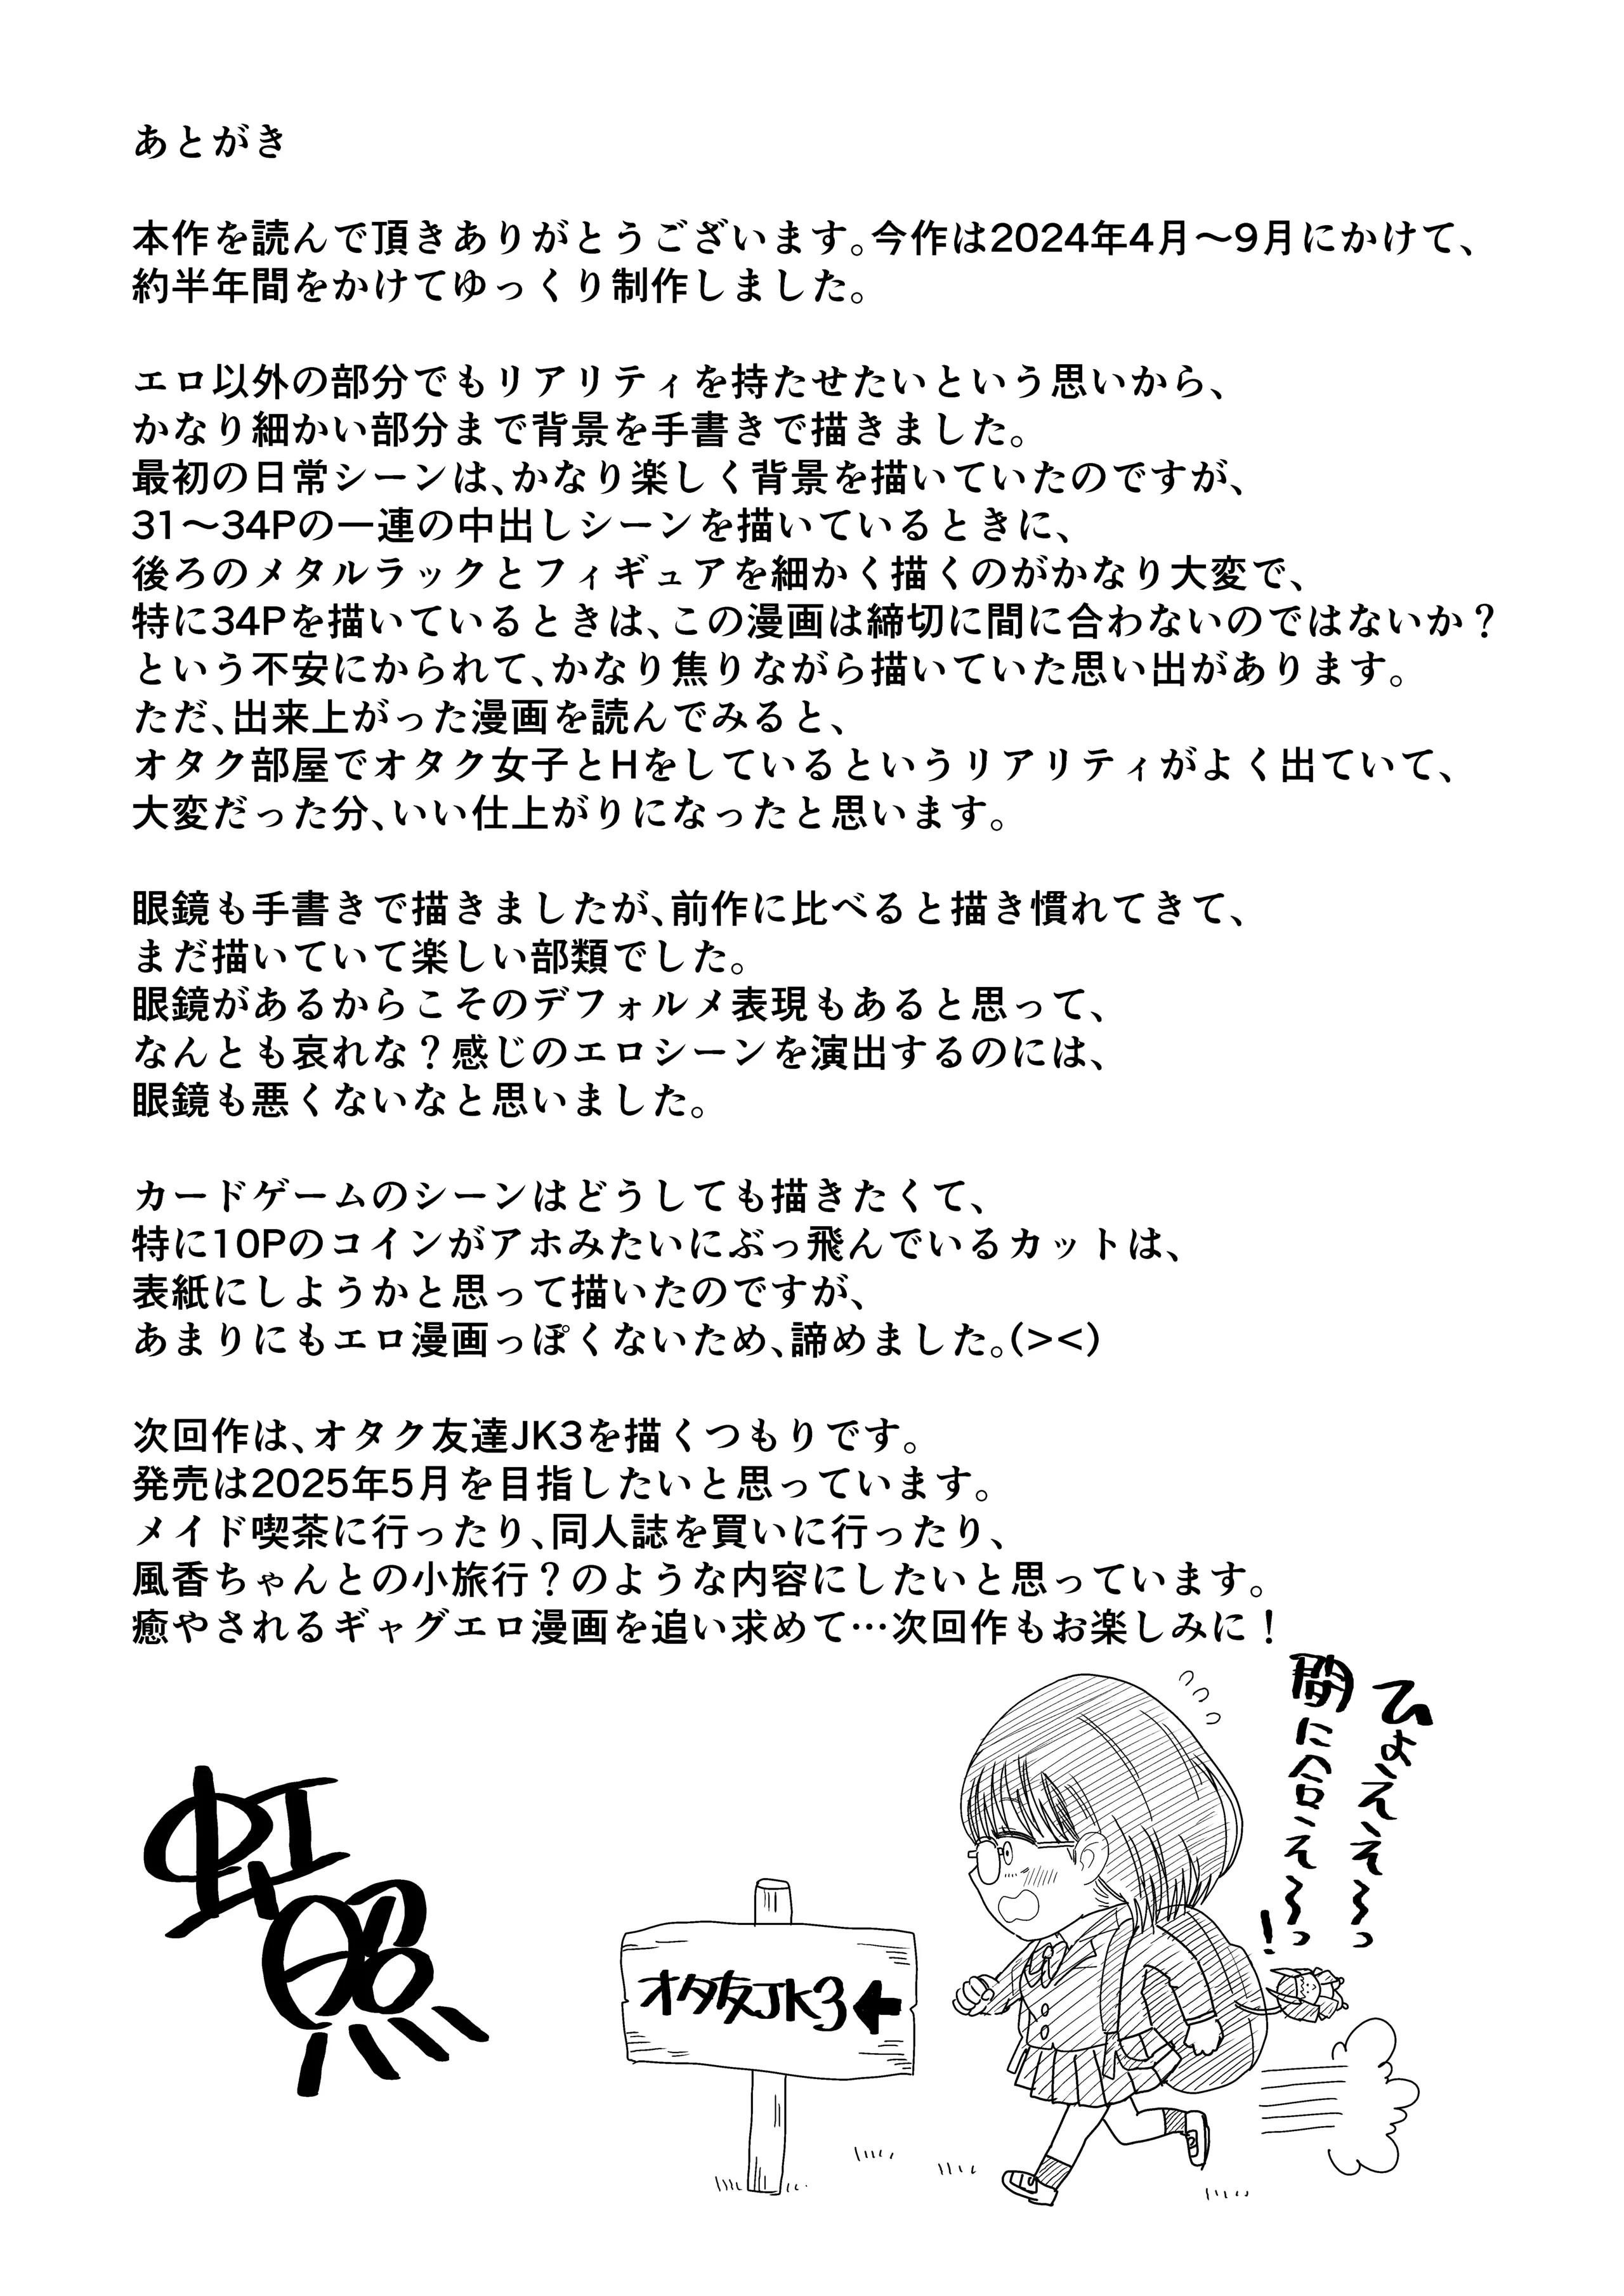 あとがき
本作を読んで頂きありがとうございます。今作は2024年4月〜9月にかけて、
約半年間をかけてゆっくり制作しました。
エロ以外の部分でもリアリティを持たせたいという思いから、
かなり細かい部分まで背景を手書きで描きました。
最初の日常シーンは、かなり楽しく背景を描いていたのですが、
31〜34Pの一連の中出しシーンを描いているときに、
後ろのメタルラックとフィギュアを細かく描くのがかなり大変で、
特に34Pを描いているときは、この漫画は締切に間に合わないのではないか？
という不安にかられて、かなり焦りながら描いていた思い出があります。
ただ、出来上がった漫画を読んでみると、
オタク部屋でオタク女子とHをしているというリアリティがよく出ていて、
大変だった分、いい仕上がりになったと思います。
眼鏡も手書きで描きましたが、前作に比べると描き慣れてきて、
まだ描いていて楽しい部類でした。
眼鏡があるからこそのデフォルメ表現もあると思って、
なんとも哀れな？感じのエロシーンを演出するのには、
眼鏡も悪くないなと思いました。
カードゲームのシーンはどうしても描きたくて、
特に10Pのコインがアホみたいにぶっ飛んでいるカットは、
表紙にしようかと思って描いたのですが、
あまりにもエロ漫画っぽくないため、諦めました。(><)
次回作は、オタク友達JK3を描くつもりです。
発売は2025年5月を目指したいと思っています。
メイド喫茶に行ったり、同人誌を買いに行ったり、
風香ちゃんとの小旅行？のような内容にしたいと思っています。
癒やされるギャグエロ漫画を追い求めて…次回作もお楽しみに！
ひょええ〜っ
間に合え〜っ！
オタ友JK3←
虹照